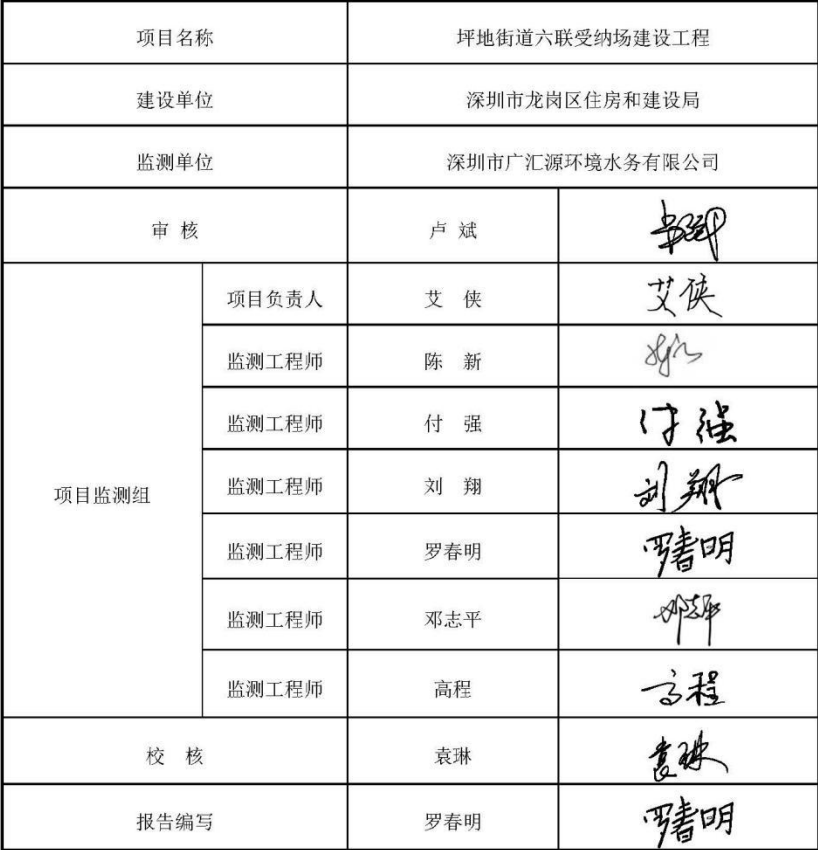 项目名称 坪地街道六联受纳场建设工程
建设单位 深圳市龙岗区住房和建设局
监测单位 深圳市广汇源环境水务有限公司
审 核 卢 斌
项目负责人 艾 侠 艾侠
监测工程师 陈 新
监测工程师 付 强 付强
项目监测组 监测工程师 刘 翔 刘翔
监测工程师 罗春明 罗春明
监测工程师 邓志平 邓志平
监测工程师 高程 高程
校 核 袁琳 袁琳
报告编写 罗春明 罗春明